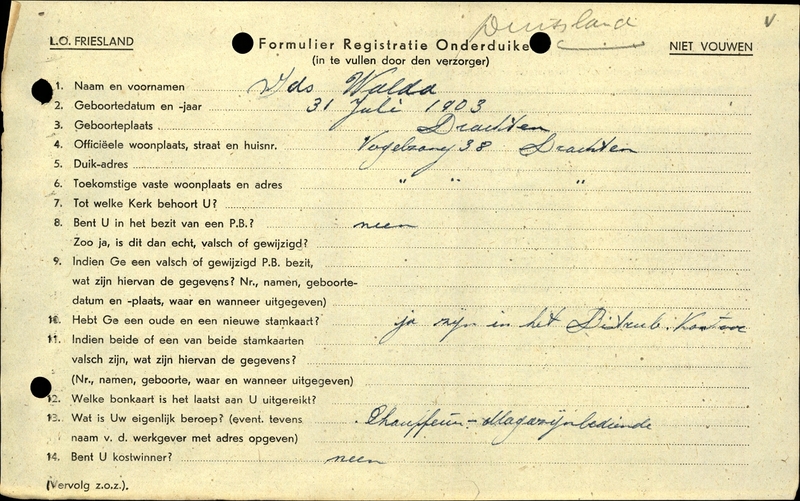 Duitsland v
L.O. FRIESLAND Formulier Registratie Onderduike NIET VOUWEN
(in te vullen door den verzorger)
1. Naam en voornamen Ids Walda
2. Geboortedatum en -jaar 31 Juli 1903
3. Geboorteplaats Drachten
4. Officiëele woonplaats, straat en huisnr. Vogelzang 38 Drachten
5. Duik-adres
6. Toekomstige vaste woonplaats en adres " " "
7. Tot welke Kerk behoort U?
8. Bent U in het bezit van een P.B.? neen
Zoo ja, is dit dan echt, valsch of gewijzigd?
9. Indien Ge een valsch of gewijzigd P.B. bezit,
wat zijn hiervan de gegevens? Nr., namen, geboorte-
datum en -plaats, waar en wanneer uitgegeven)
10. Hebt Ge een oude en een nieuwe stamkaart? ja zijn in het Distrub. Kantoor
11. Indien beide of een van beide stamkaarten
valsch zijn, wat zijn hiervan de gegevens?
(Nr., namen, geboorte, waar en wanneer uitgegeven)
12. Welke bonkaart is het laatst aan U uitgereikt?
13. Wat is Uw eigenlijk beroep? (event. tevens Chauffeur-Magazijnbediende
naam v. d. werkgever met adres opgeven)
14. Bent U kostwinner? neen
(Vervolg z.o.z.).